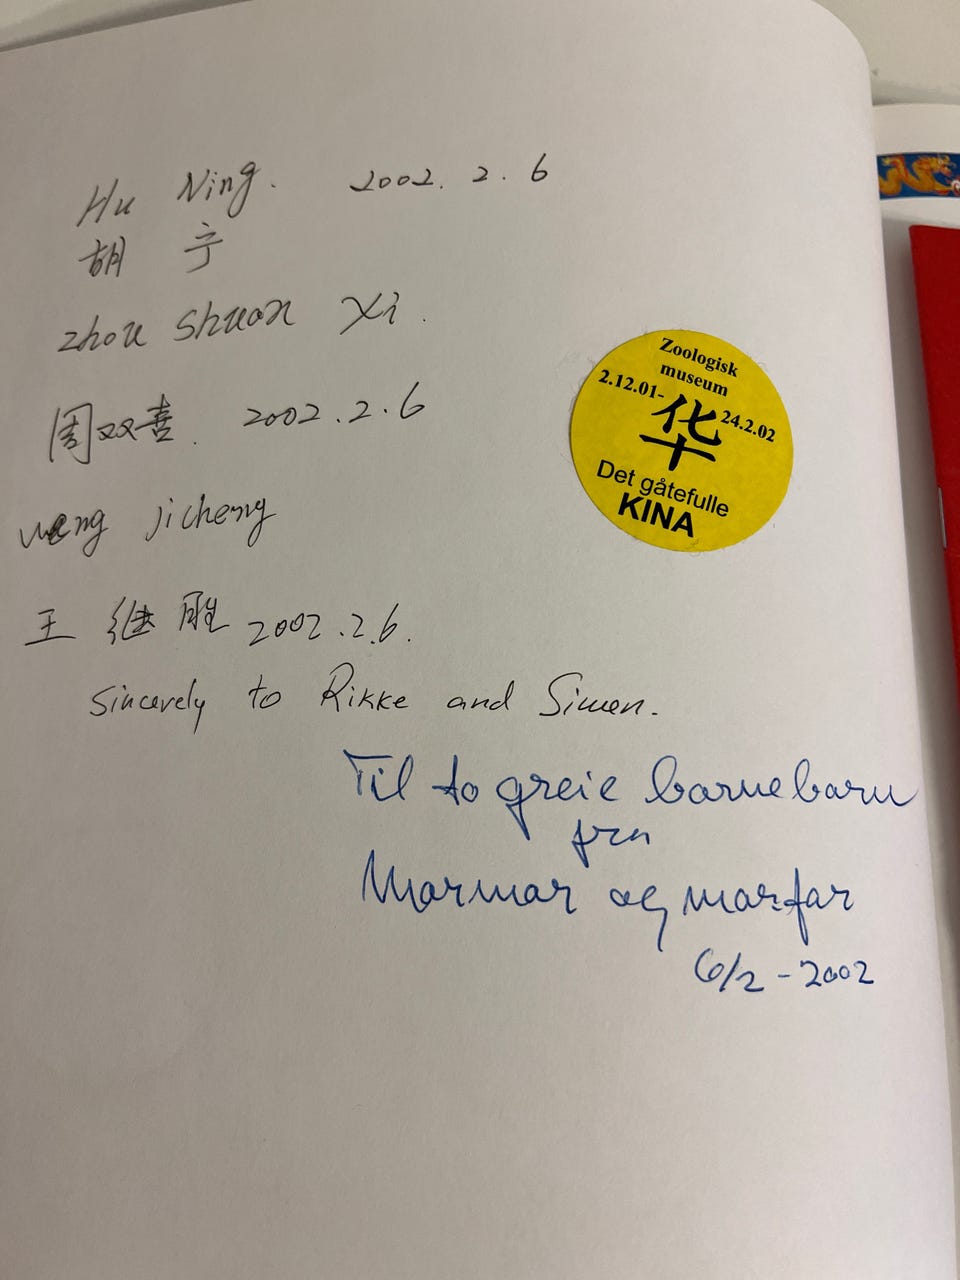 Hu Ning. 2002. 2. 6
胡 宁
Zhou Shuan Xi.
周双喜. 2002.2.6
wang jicheng
王 继胜 2002.2.6.
Sincerely to Rikke and Simen.
Til to greie barnebarn
fra
Marmar og marfar
6/2-2002
Zoologisk
museum
2.12.01-
24.2.02
华
Det gåtefulle
KINA